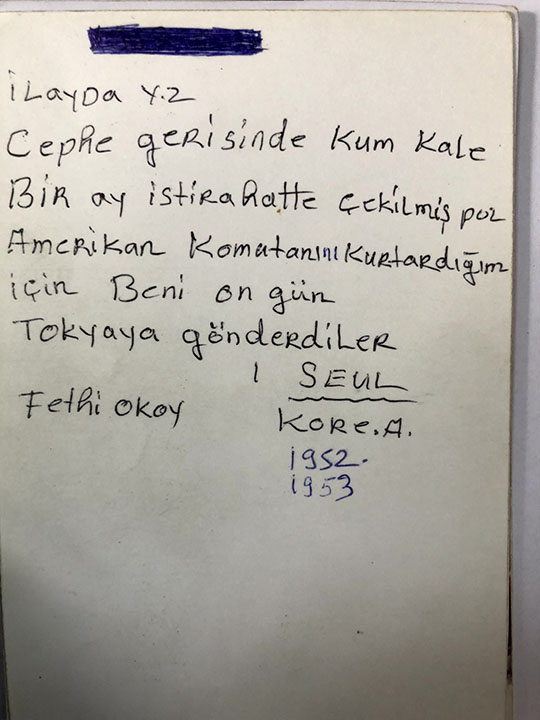 İLayDa Y.Z
Cephe gerisinde Kum Kale
Bir ay istirahatte çekilmiş poz
Amerikan Komutanını Kurtardığım
için Beni on gün
Tokyaya gönderdiler
SEUL
Fethi OKOY
KORE.A.
1952.
1953